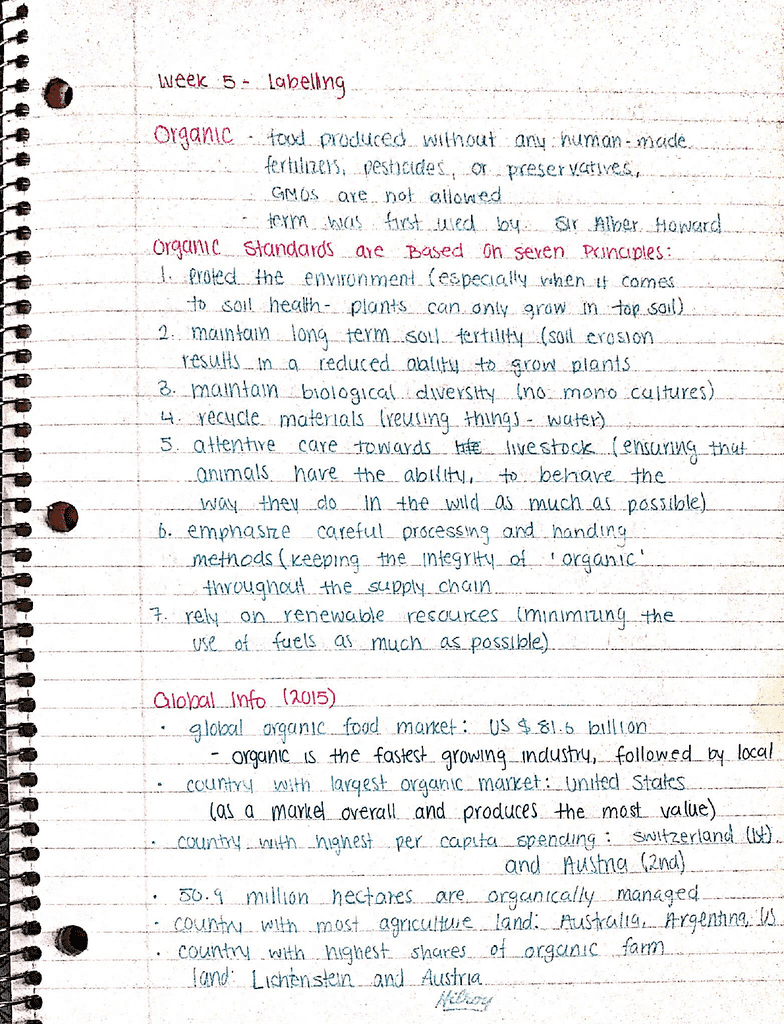 Week 5 - Labelling
Organic - food produced without any human-made
fertilizers, pesticides, or preservatives,
GMOs are not allowed
- term was first used by Sir Alber Howard
Organic Standards are Based on Seven Principles:
1. protect the environment (especially when it comes
to soil health - plants can only grow in top soil)
2. maintain long term soil fertility (soil erosion
results in a reduced ability to grow plants
3. maintain biological diversity (no mono cultures)
4. recycle materials (reusing things - water)
5. attentive care towards livestock (ensuring that
animals have the ability, to behave the
way they do in the wild as much as possible)
6. emphasize careful processing and handing
methods (keeping the integrity of 'organic'
throughout the supply chain
7. rely on renewable resources (minimizing the
use of fuels as much as possible)
Global Info (2015)
• global organic food market: US $81.6 billion
- organic is the fastest growing industry, followed by local
• country with largest organic market: United States
(as a market overall and produces the most value)
• country with highest per capita spending: Switzerland (1st)
and Austria (2nd)
• 50.9 million hectares are organically managed
• country with most agriculture land: Australia, Argentina, US
• country with highest shares of organic farm
land: Lichenstein and Austria
Hilroy